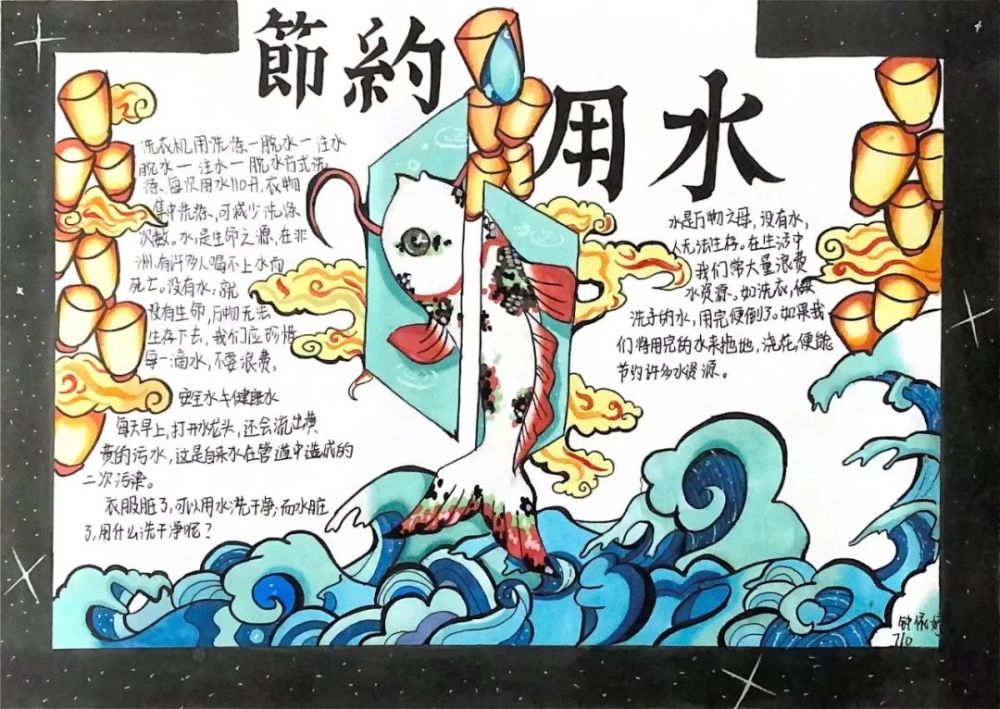 節約
用水
洗衣机用洗涤一脱水一注水
脱水一注水一脱水方式洗
涤、每次用水110升,衣物
集中洗涤,可减少洗涤
次数。水是生命之源,在非
洲,有许多人喝不上水而
死亡。没有水,就
没有生命,万物无法
生存下去,我们应珍惜
每一滴水,不要浪费,
安全水≠健康水
每天早上,打开水龙头,还会流出黄
黄的污水,这是自来水在管道中造成的
二次污染。
衣服脏了,可以用水洗干净;而水脏
了,用什么洗干净呢?
水是万物之母,没有水,
人无法生存。在生活中
我们常大量浪费
水资源。如洗衣,
洗手的水,用完便倒了。如果我
们将用完的水来拖地,浇花,便能
节约许多水资源。
710